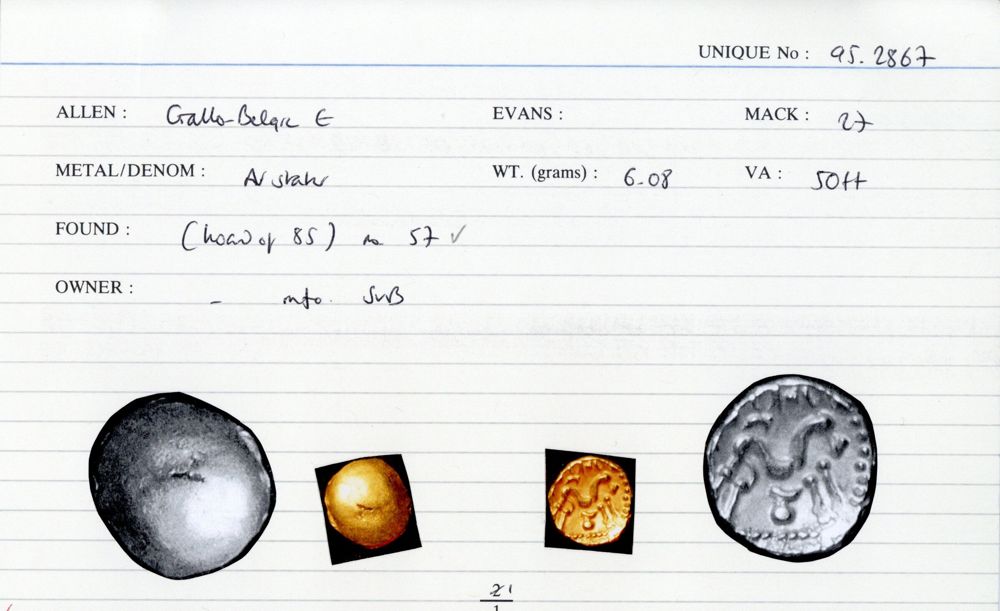 UNIQUE No : 95.2867
ALLEN : Gallo-Belgic E EVANS : MACK : 27
METAL/DENOM : AV stater WT. (grams) : 6.08 VA : 50ff
FOUND : (hoard of 85) no 57 ✓
OWNER : - info. SVB
21
1